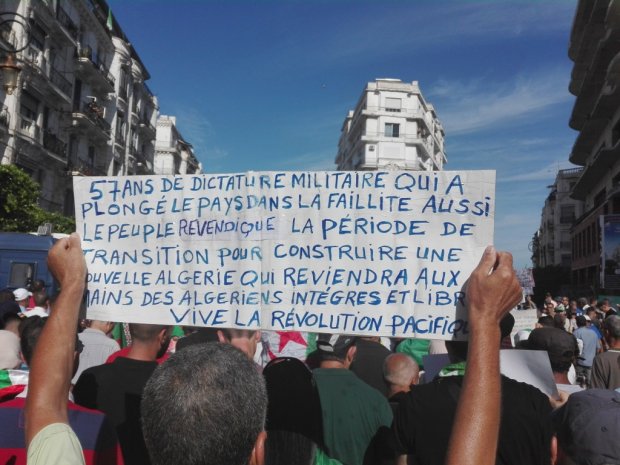 57 ANS DE DICTATURE MILITAIRE QUI A
PLONGÉ LE PAYS DANS LA FAILLITE AUSSI
LE PEUPLE REVENDIQUE LA PÉRIODE DE
TRANSITION POUR CONSTRUIRE UNE
NOUVELLE ALGERIE QUI REVIENDRA AUX
MAINS DES ALGERIENS INTÉGRES ET LIBR
VIVE LA RÉVOLUTION PACIFIQ